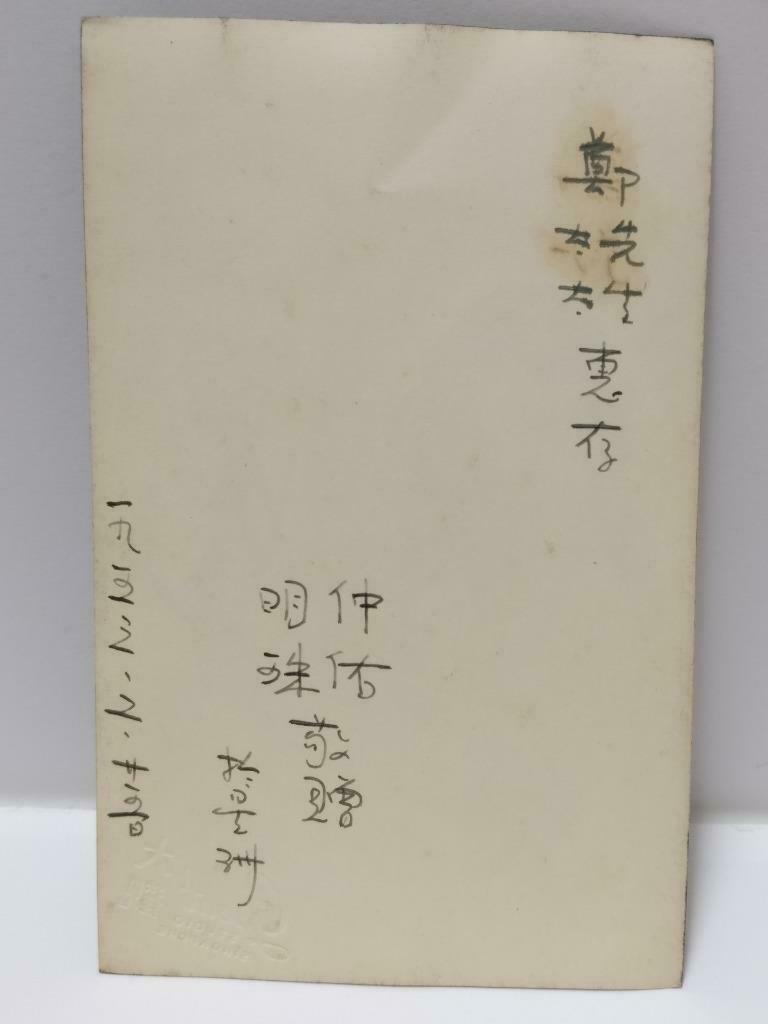 鄭先生太太惠存
仲佑
明珠
敬贈
於星洲
一九五二、二、廿五日